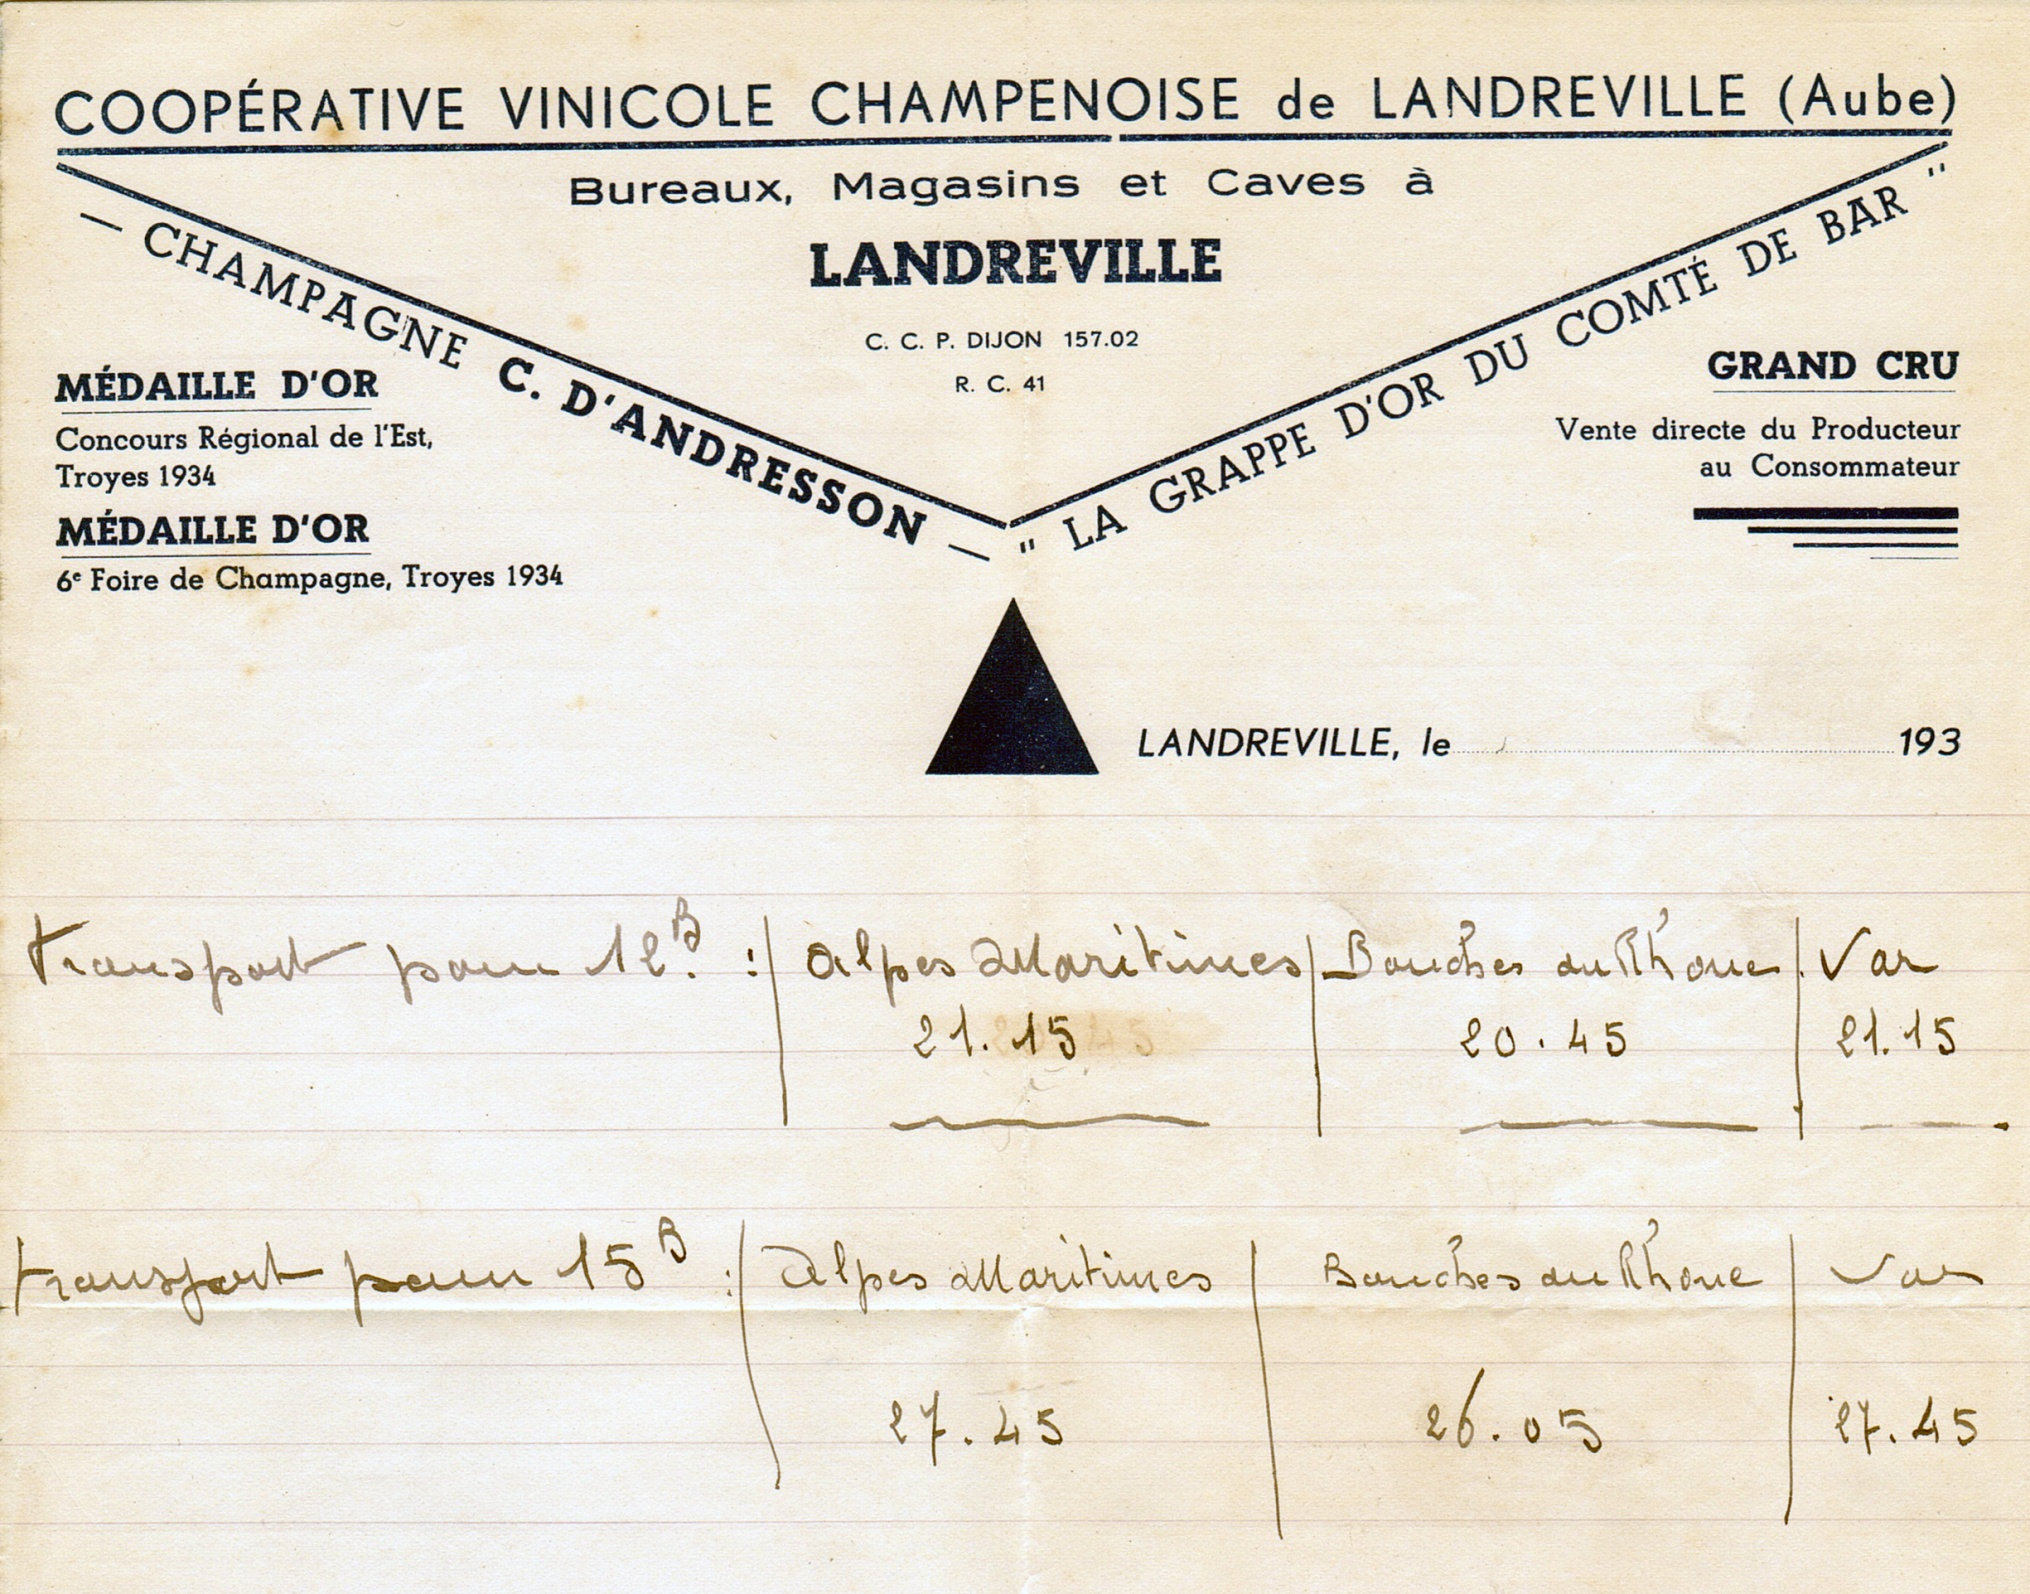 COOPÉRATIVE VINICOLE CHAMPENOISE de LANDREVILLE (Aube)
Bureaux, Magasins et Caves à
LANDREVILLE
C. C. P. DIJON 157.02
R. C. 41
— CHAMPAGNE C. D'ANDRESSON —
" LA GRAPPE D'OR DU COMTÉ DE BAR "
MÉDAILLE D'OR
Concours Régional de l'Est,
Troyes 1934
MÉDAILLE D'OR
6e Foire de Champagne, Troyes 1934
GRAND CRU
Vente directe du Producteur
au Consommateur
LANDREVILLE, le 193
transport pour 12 B. : Alpes Maritimes Bouches du Rhone Var
21.15 20.45 21.15
transport pour 15 B : Alpes Maritimes Bouches du Rhone Var
27.45 26.05 27.45